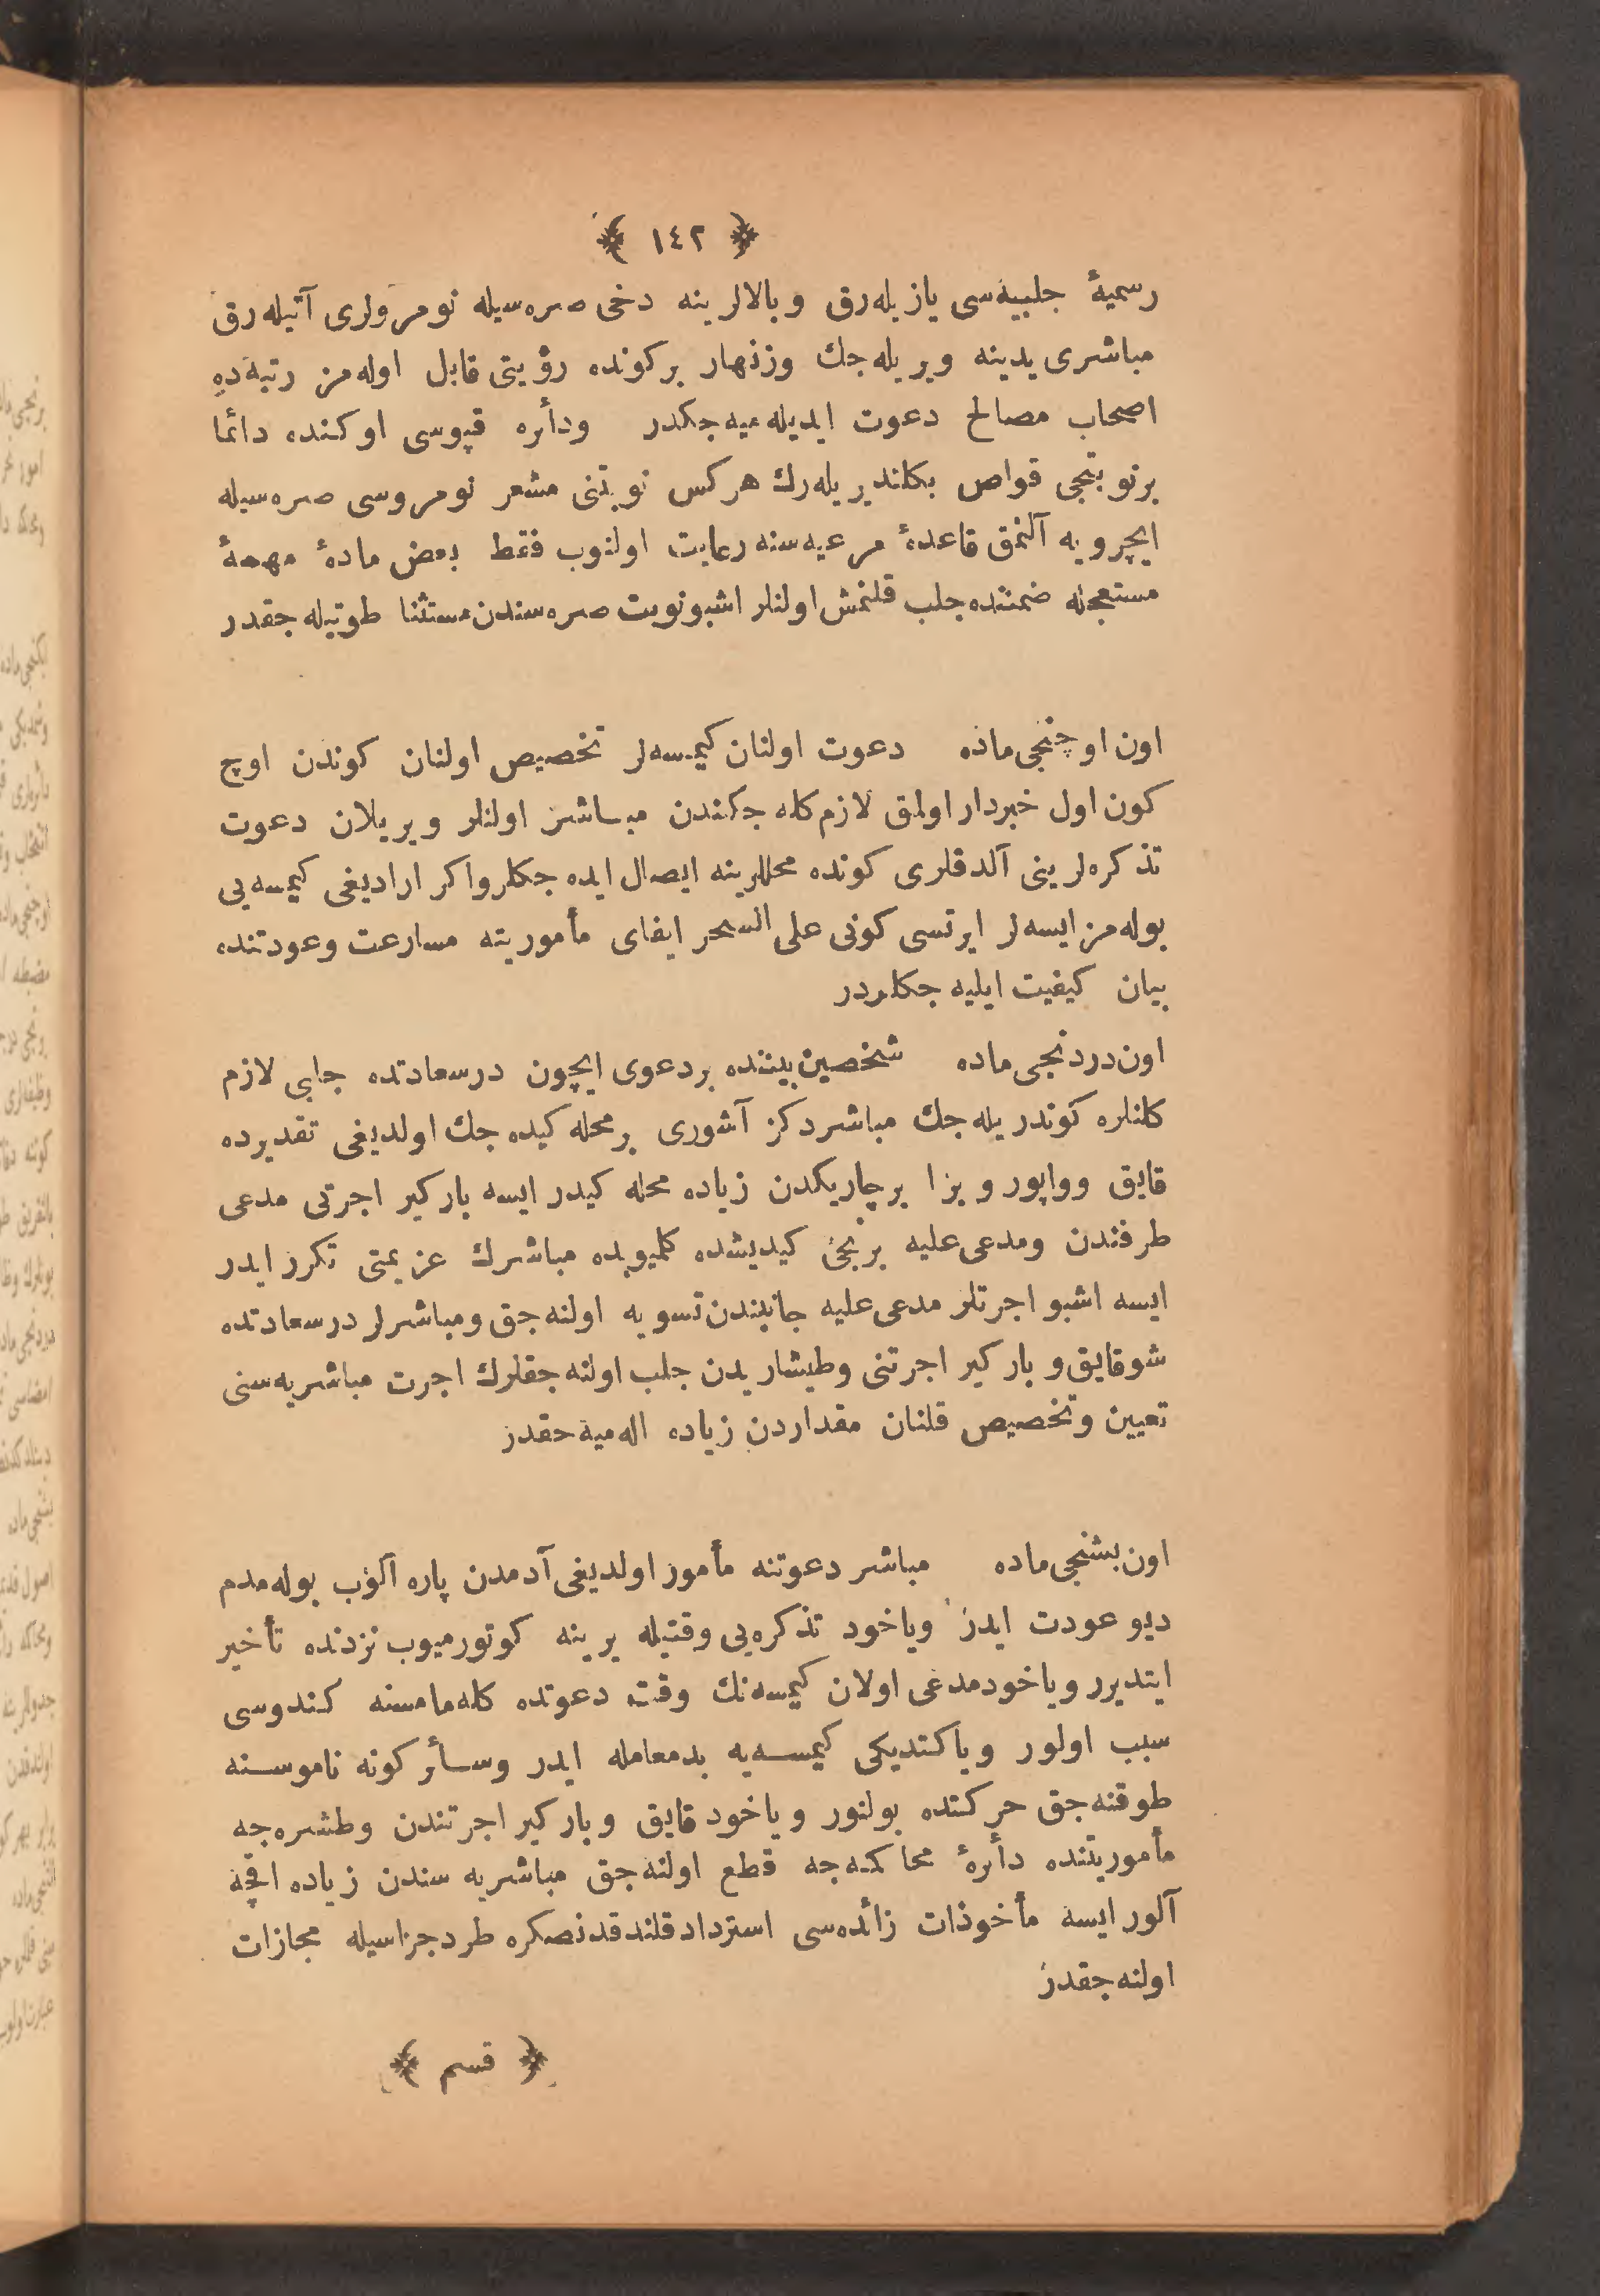 ﴿ ١٤٢ ﴾
رسمیهٔ جلبیه‌سی یازیله‌رق وبالالرینه دخی صره‌سیله نومرولری آتیله‌رق
مباشری یدینه ویریله‌جك وزنهار برکونده رؤیتی قابل اوله‌مز رتبه‌ده
اصحاب مصالح دعوت ایدیله‌میه‌جکدر ودأره قپوسی اوکنده دائما
برنوبتجی قواص بکلندیریله‌رك هرکس نوبتنی مشعر نومروسی صره‌سیله
ایچرویه آلنمق قاعدهٔ مرعیه‌سنه رعایت اولنوب فقط بعض مادهٔ مهمهٔ
مستعجله ضمننده جلب قلنمش اولنلر اشبونوبت صره‌سندن مستثنا طوتیله‌جقدر
اون اوچنجی ماده دعوت اولنان کیمسه‌لر تخصیص اولنان کوندن اوچ
کون اول خبردار اولمق لازم کله‌جکندن مباشر اولنلر ویریلان دعوت
تذکره‌لرینی آلدقلری کونده محللرینه ایصال ایده‌جکلر واکر ارادیغی کیمسه‌یی
بوله‌مز ایسه‌لر ایرتسی کونی علی السحر ایفای مأموریته مسارعت وعودتنده
بیان کیفیت ایلیه‌جکلردر
اون دردنجی ماده شخصین بیننده بردعوی ایچون درسعادتده جلبی لازم
کلنلره کوندریله‌جك مباشر دکز آشوری برمحله کیده‌جك اولدیغی تقدیرده
قایق وواپور وبزا برچاریکدن زیاده محله کیدر ایسه بارکیر اجرتی مدعی
طرفندن ومدعی‌علیه برنجی کیدیشده کلمیوبده مباشرك عزیمتی تکرر ایدر
ایسه اشبو اجرتلر مدعی‌علیه جانبندن تسویه اولنه‌جق ومباشرلر درسعادتده
شوقایق وبارکیر اجرتنی وطیشاریدن جلب اولنه‌جقلرك اجرت مباشریه‌سنی
تعیین وتخصیص قلنان مقداردن زیاده اله‌میه‌جقدر
اون بشنجی ماده مباشر دعوتنه مأمور اولدیغی آدمدن پاره آلوب بوله‌مدم
دیو عودت ایدر ویاخود تذکره‌یی وقتیله یرینه کوتورمیوب نزدنده تأخیر
ایتدیرر ویاخود مدعی اولان کیمسه‌نك وقت دعوتده کله‌مامسنه کندوسی
سبب اولور ویا کتدیکی کیمسه‌یه بدمعامله ایدر وسأر کونه ناموسنه
طوقنه‌جق حرکتده بولنور ویاخود قایق وبارکیر اجرتندن وطشره‌جه
مأموریتنده دأرهٔ محاکمه‌جه قطع اولنه‌جق مباشریه‌سندن زیاده اقچه
آلور ایسه مأخوذات زائده‌سی استرداد قلندقدنصکره طرد جزاسیله مجازات
اولنه‌جقدر
﴿ قسم ﴾